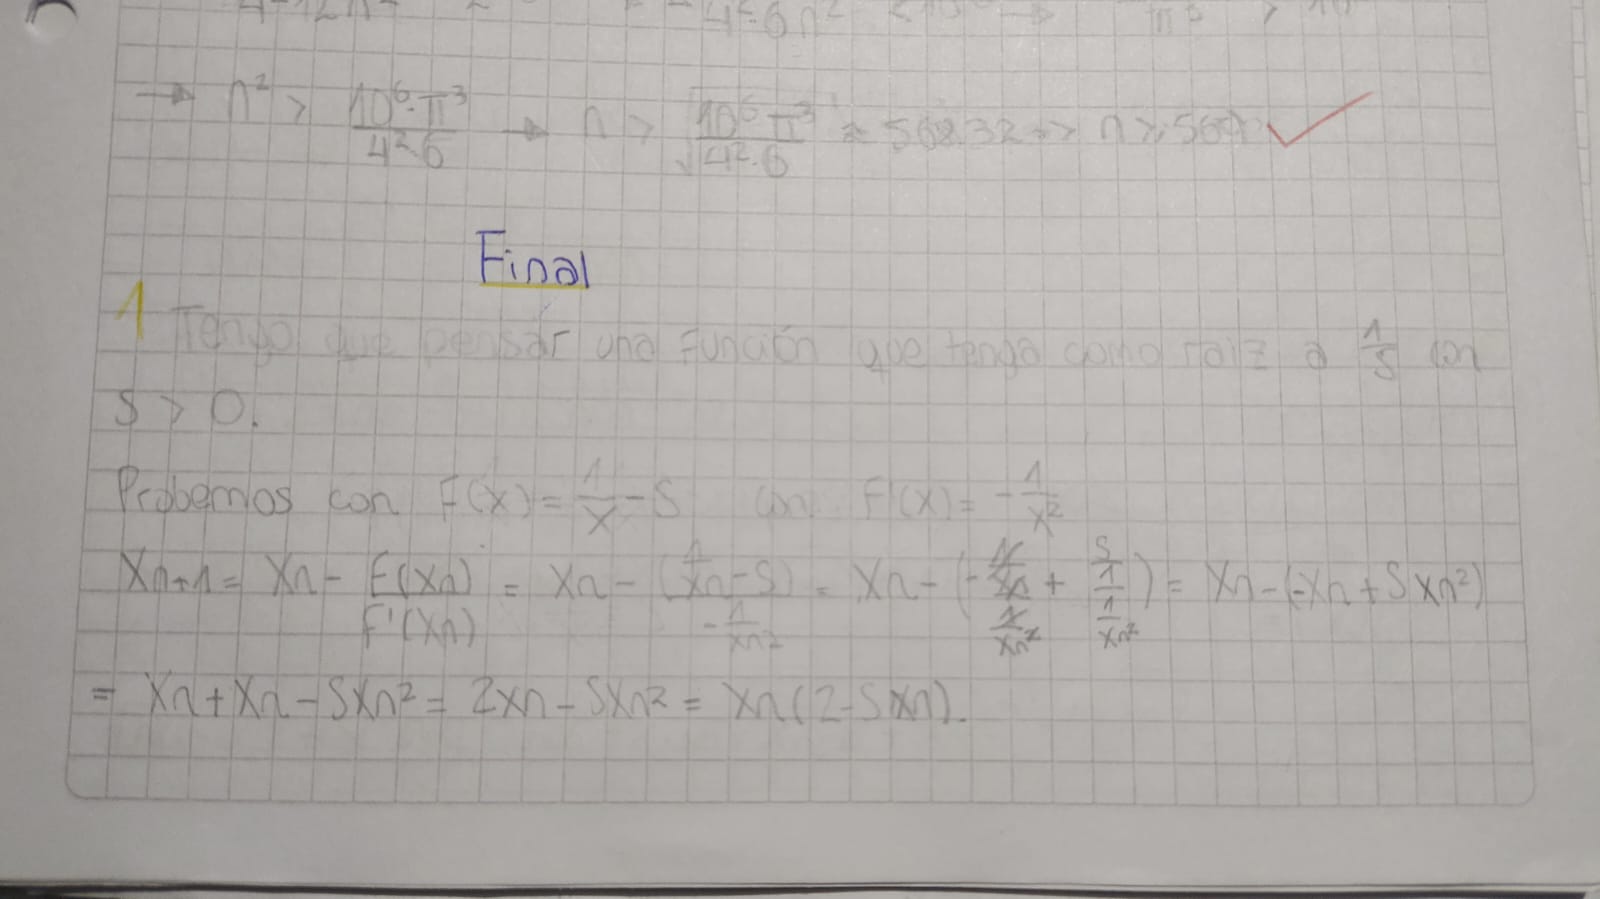 → n² > 10⁶·π³/4²·6 → n > √(10⁶ π³/4²·6) ≈ 568.32 => n ≥ 569 ✓
Final
1 Tengo que pensar una función que tenga como raíz a 1/S con
S > 0.
Probemos con F(x) = 1/x - S con F'(x) = -1/x²
Xn+1 = Xn - F(Xn)/F'(Xn) = Xn - (1/Xn - S)/(-1/Xn²) = Xn - (-(1/Xn)/(1/Xn²) + (S/1)/(1/Xn²)) = Xn - (-Xn + SXn²)
= Xn + Xn - SXn² = 2Xn - SXn² = Xn(2 - SXn).